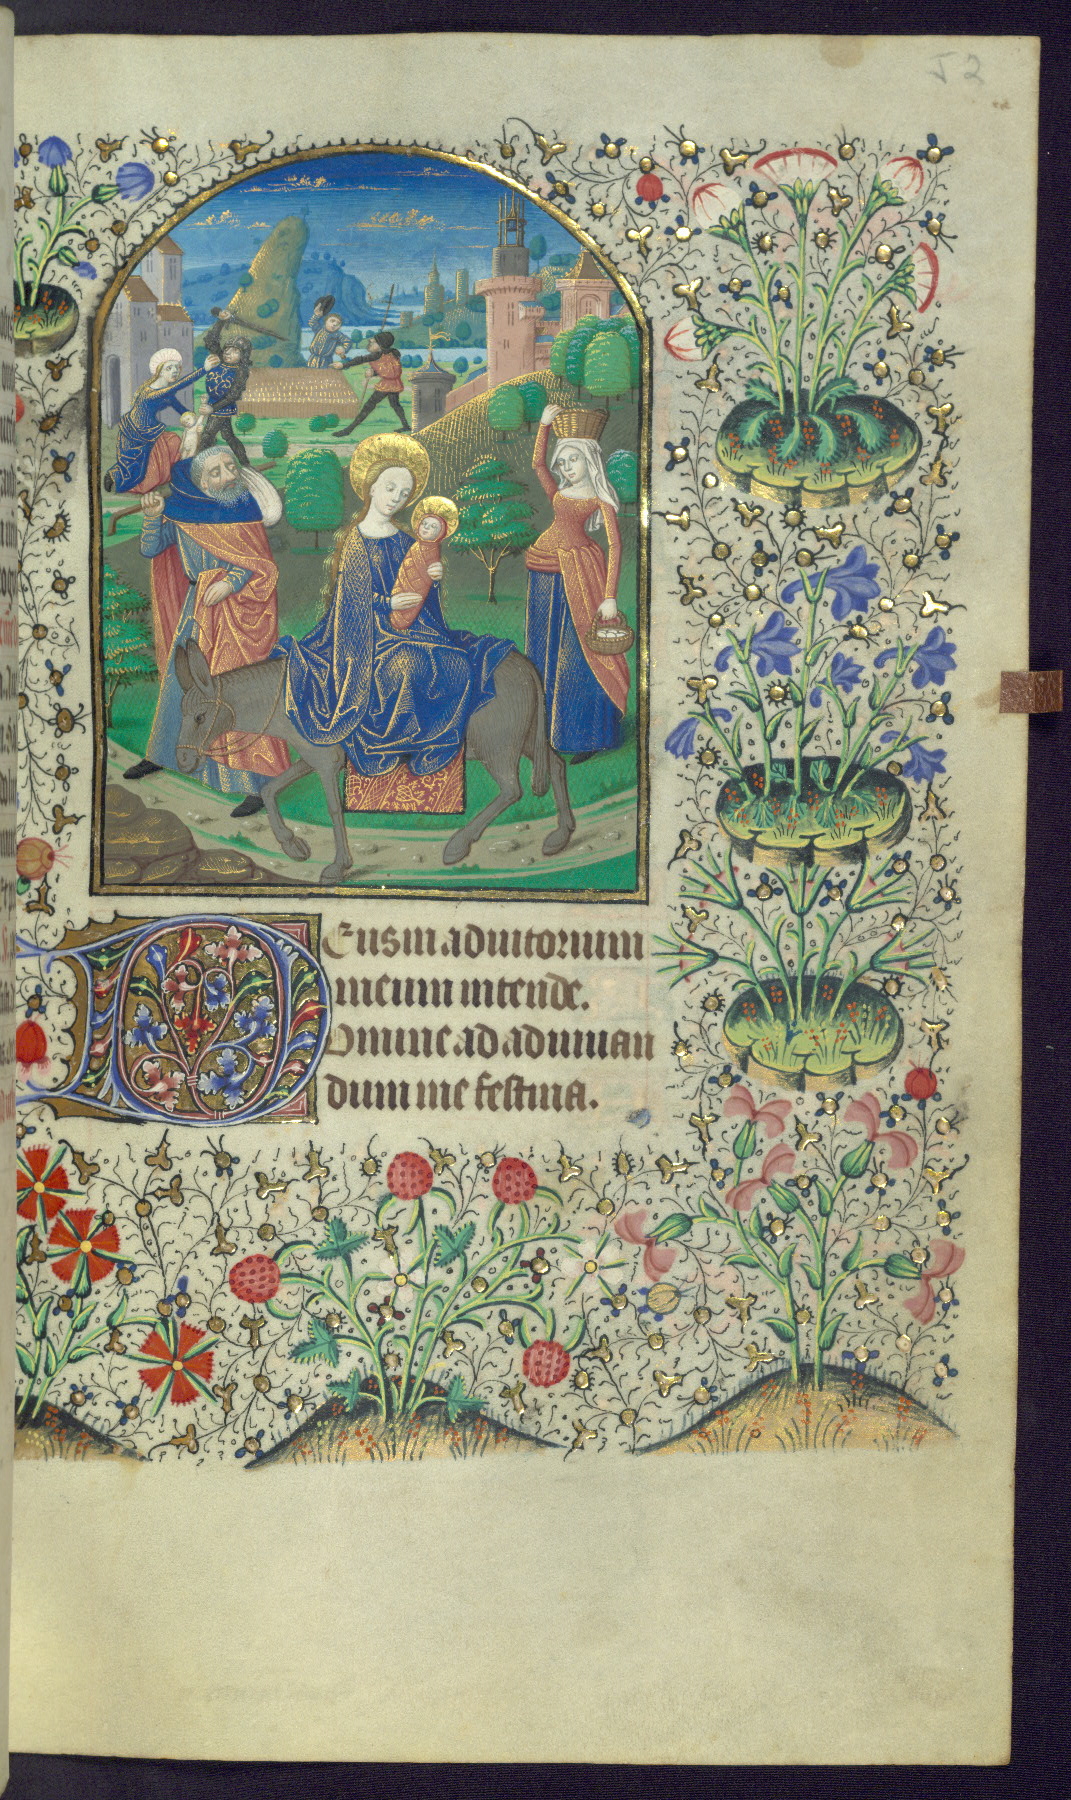 52
Deus in adiutorium
meum intende.
Domine ad adiuuan
dum me festina.